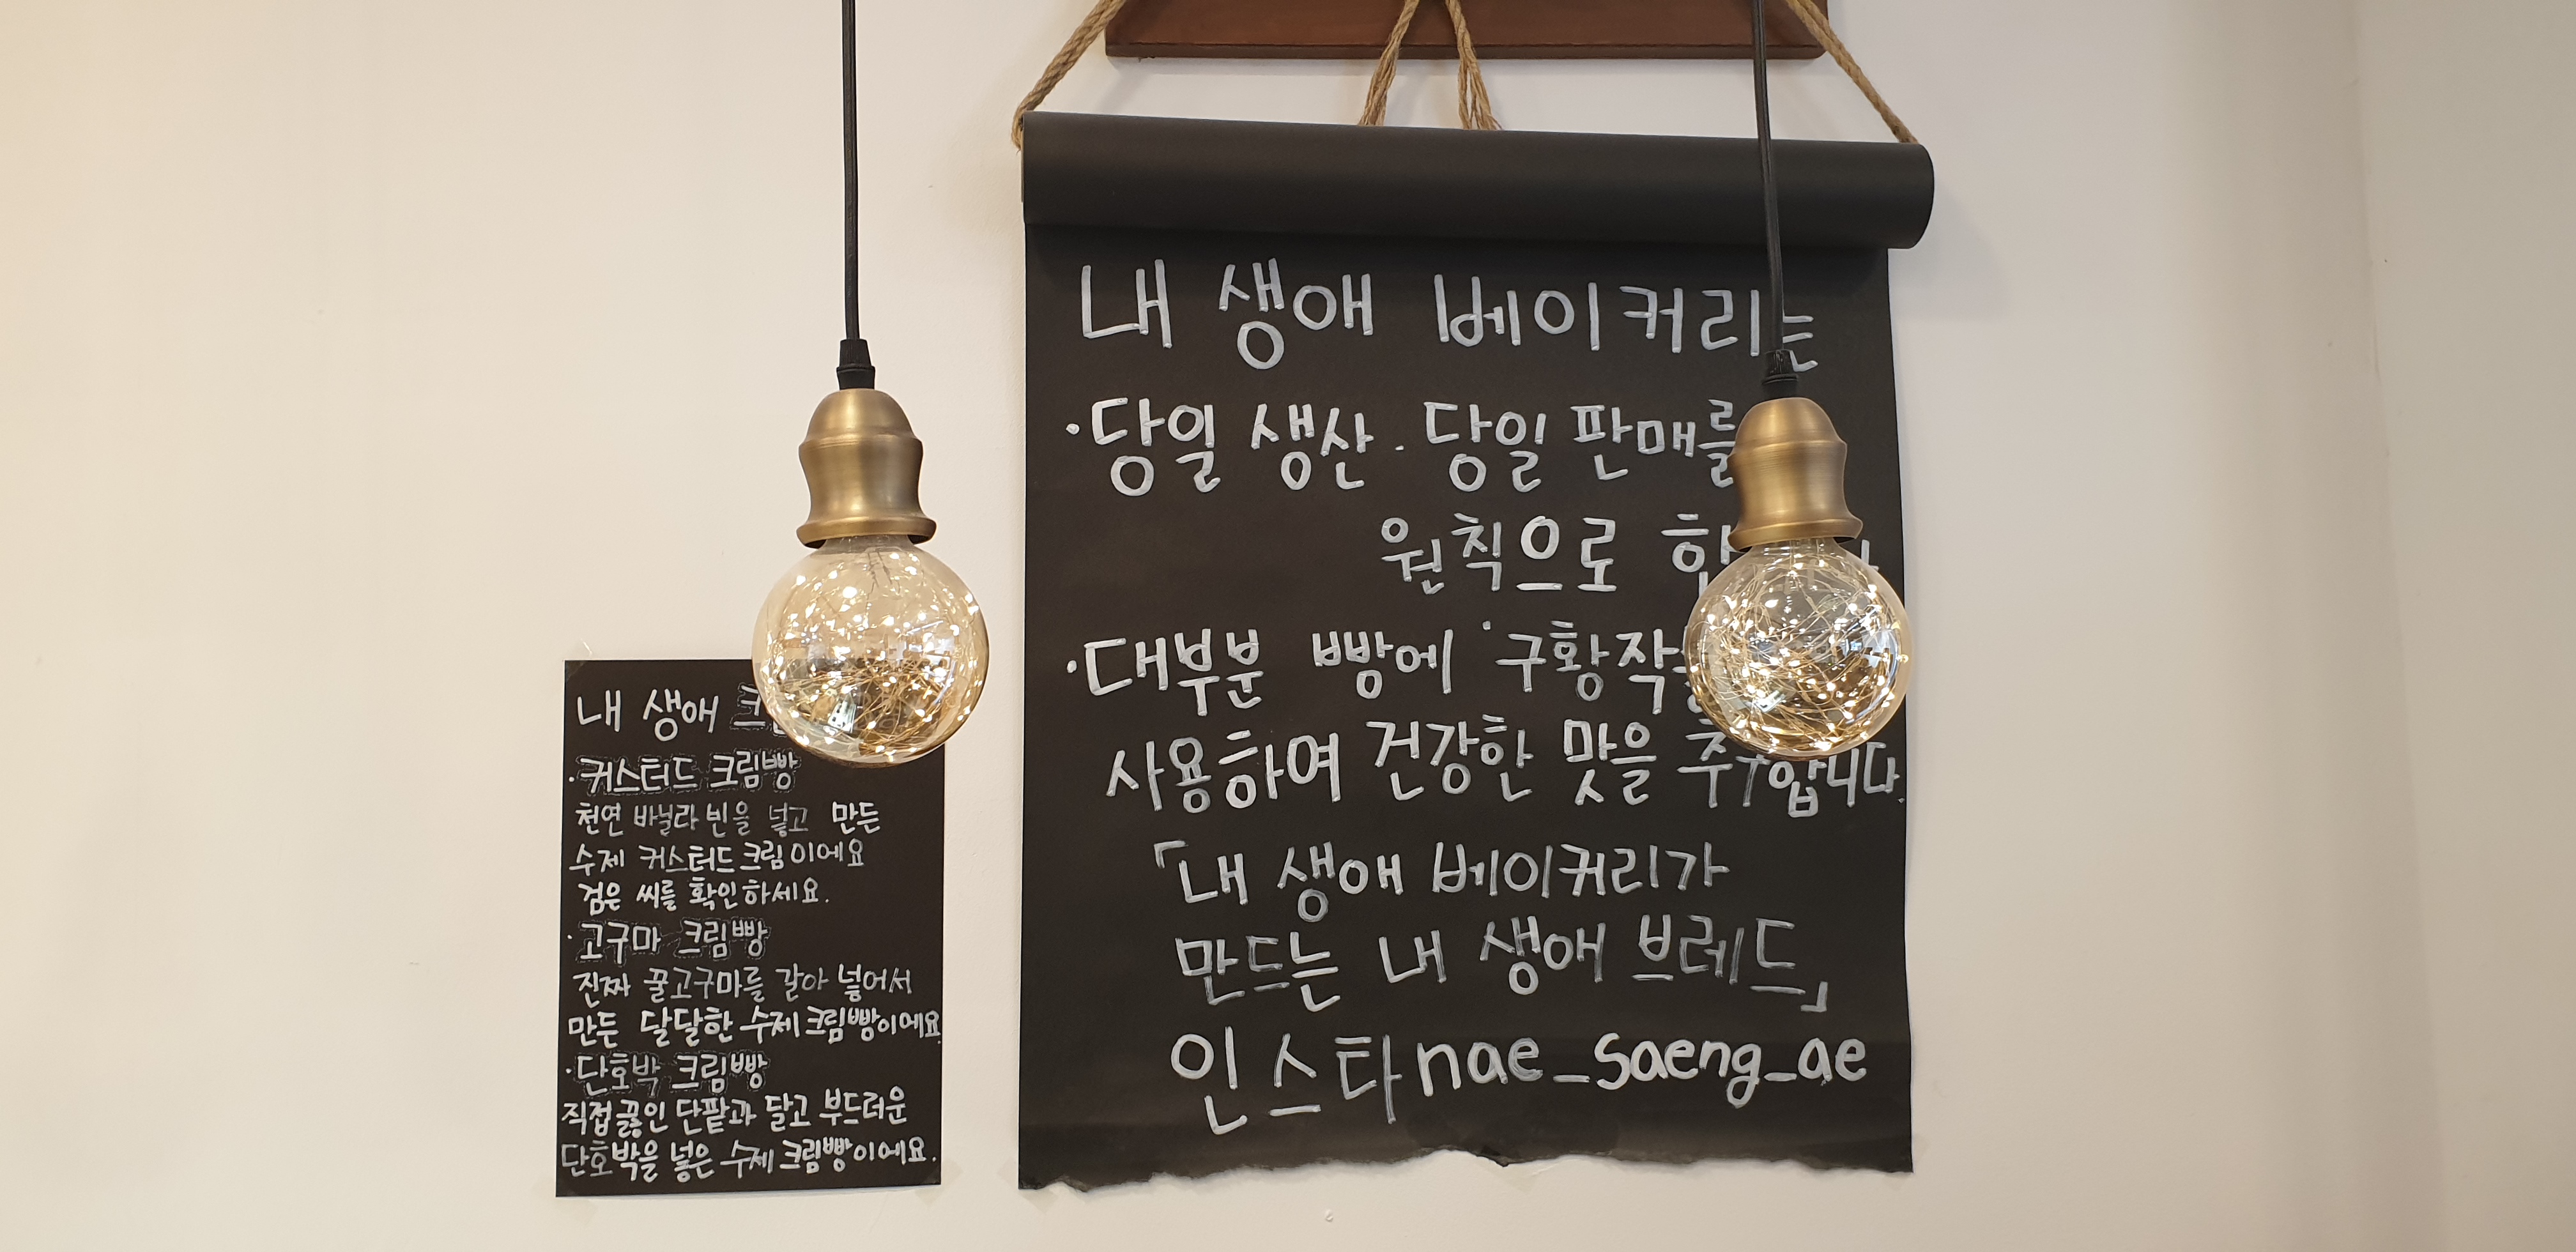 내 생애
·커스터드 크림빵
천연 바닐라 빈을 넣고 만든
수제 커스터드 크림이에요
검은 씨를 확인하세요.
·고구마 크림빵
진짜 꿀고구마를 갈아 넣어서
만든 달달한 수제 크림빵이에요
·단호박 크림빵
직접 끓인 단팥과 달고 부드러운
단호박을 넣은 수제 크림빵이에요.
내 생애 베이커리는
·당일 생산·당일 판매를
원칙으로
·대부분 빵에
사용하여 건강한 맛을
「내 생애 베이커리가
만드는 내 생애 브레드」
인스타 nae_saeng_ae